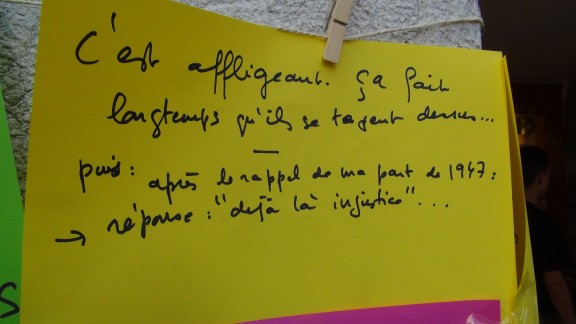 C'est affligeant. ça fait
longtemps qu'ils se tapent dessus...
—
puis: après le rappel de ma part de 1947:
→ réponse: "dejà là injustice"...
S